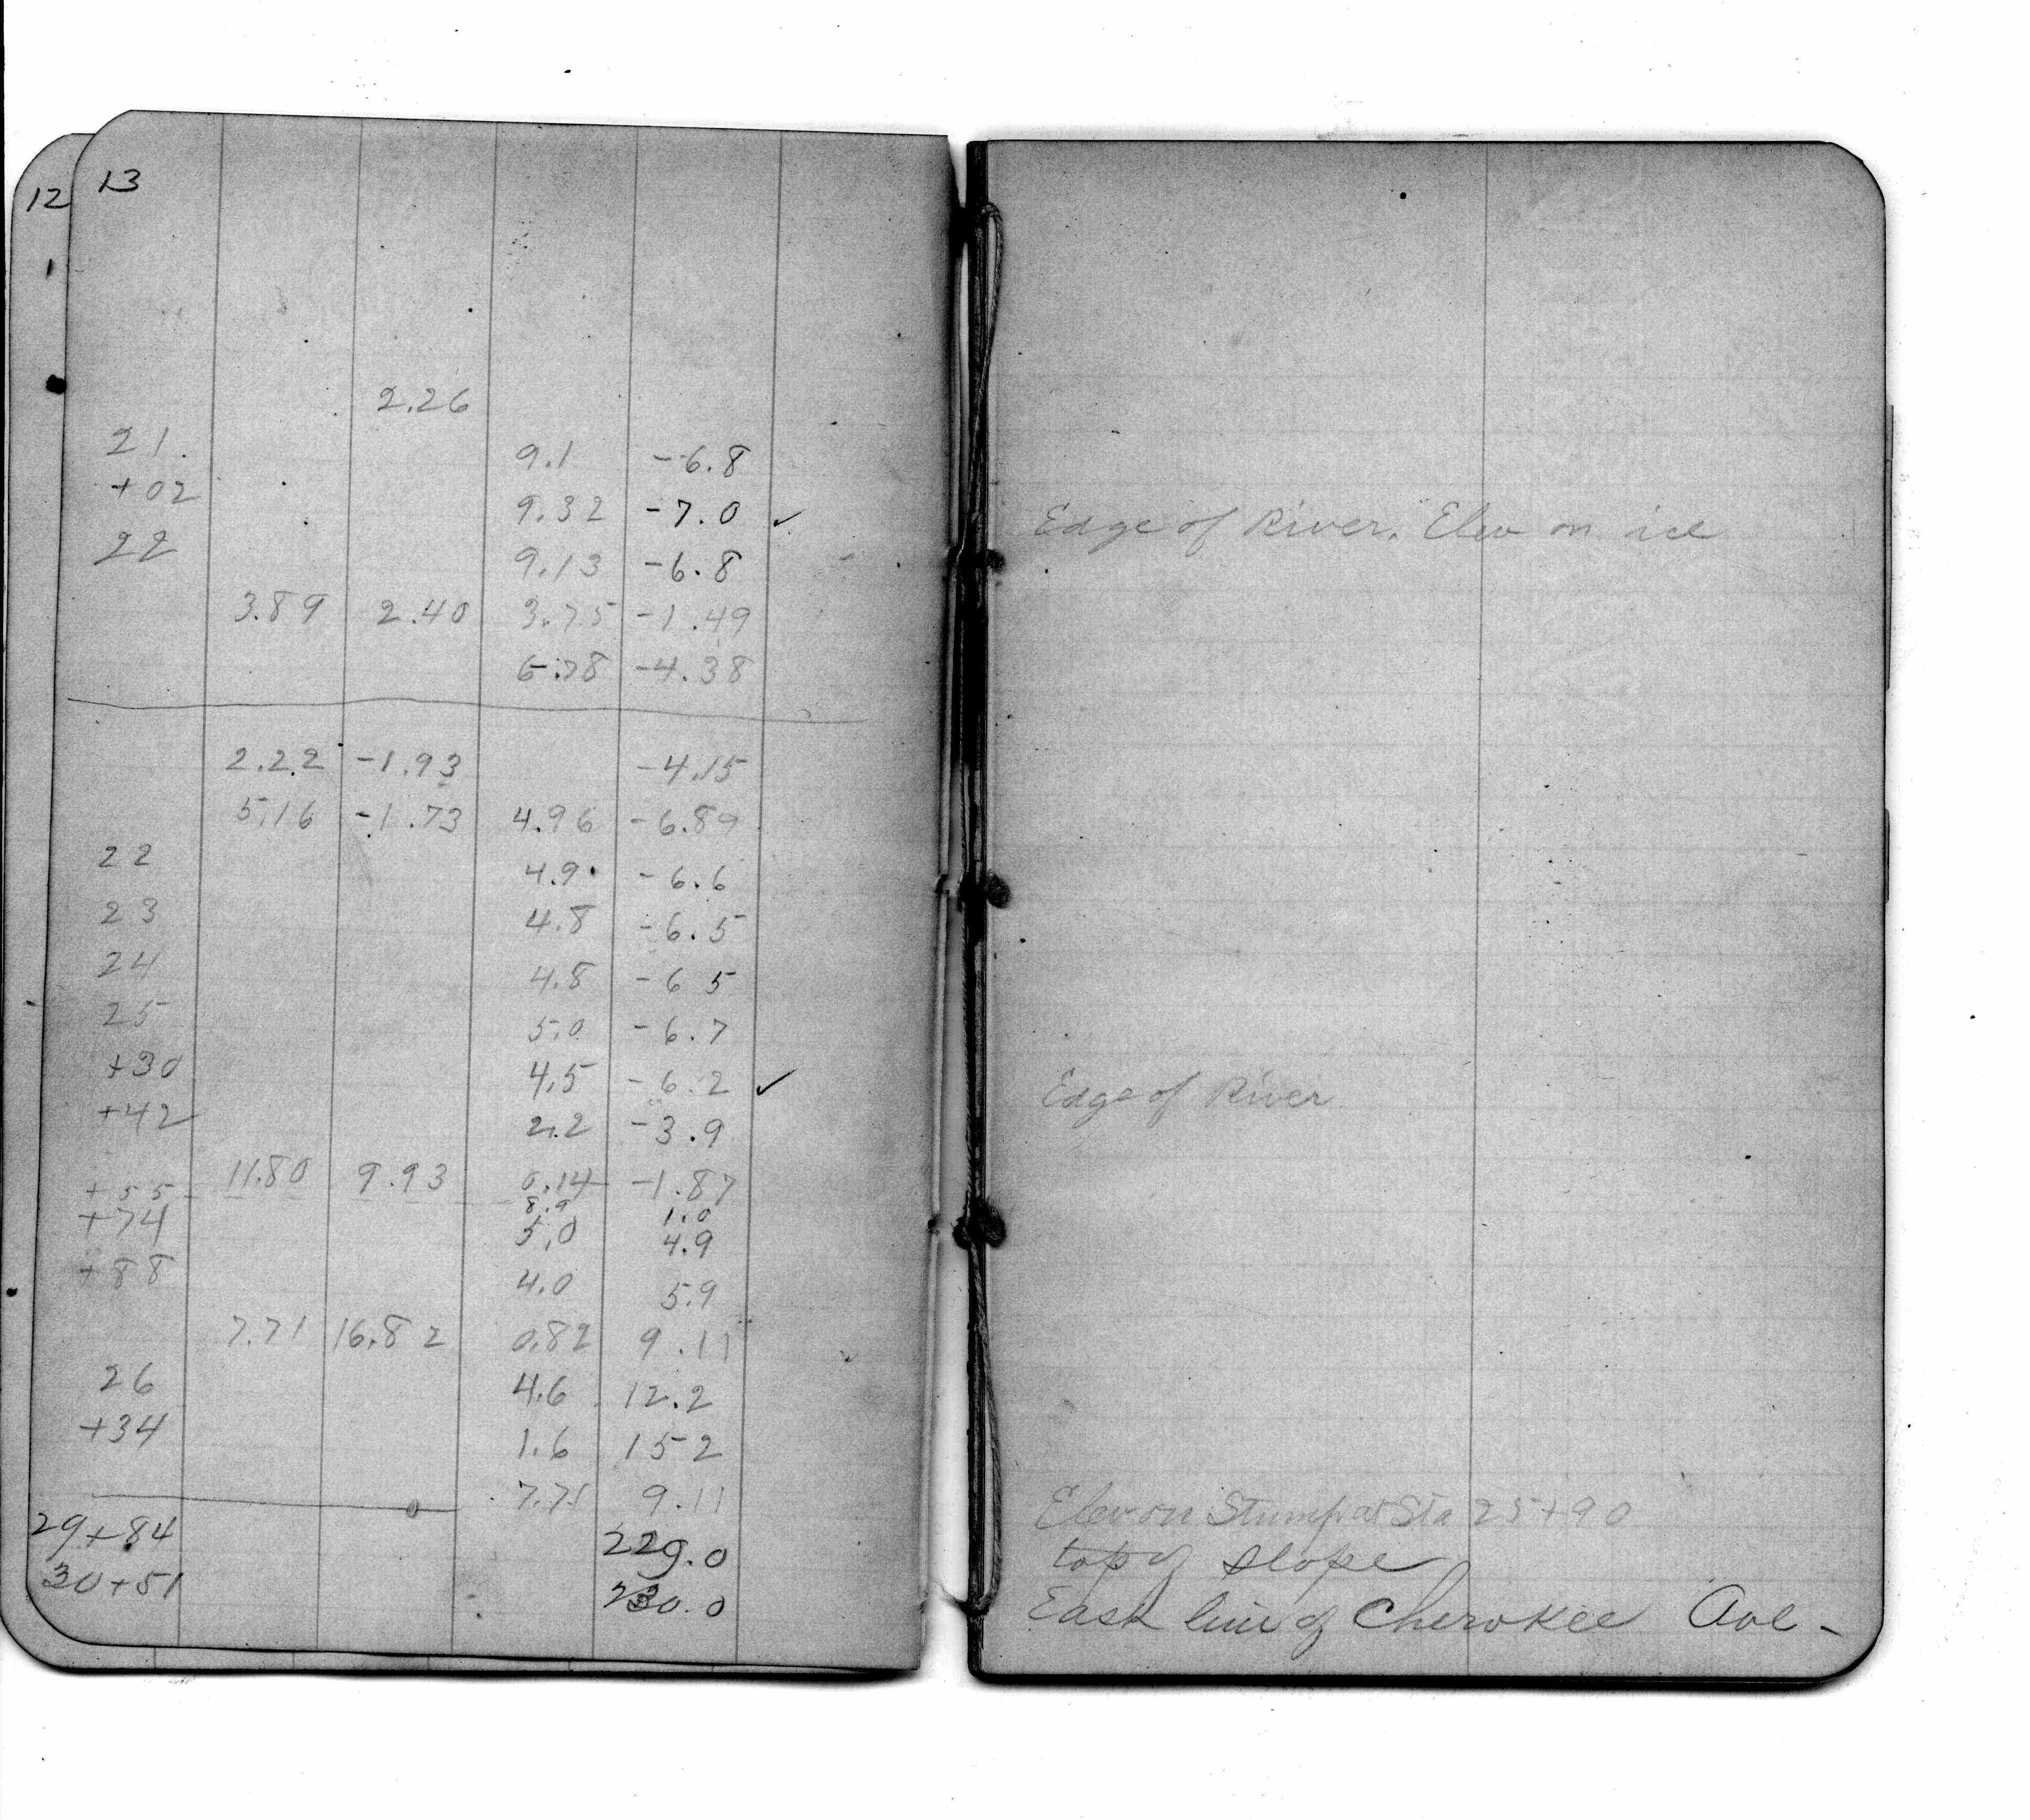 12
13
1
2.26
21. 9.1 -6.8
+02 9.32 -7.0 ✓ Edge of River. Elev on ice
22 9.13 -6.8
3.89 2.40 3.75 -1.49
6.78 -4.38
2.22 -1.93 -4.15
5.16 -1.73 4.96 -6.89
22 4.9 -6.6
23 4.8 -6.5
24 4.8 -6 5
25 5.0 -6.7
+30 4.5 -6.2 ✓ Edge of River
+42 2.2 -3.9
11.80 9.93 0.14 -1.87
+55 8.9 1.0
+74 5.0 4.9
+88 4.0 5.9
7.71 16.82 0.82 9.11
26 4.6 12.2
+34 1.6 15 2
7.71 9.11 Elev on Stump at Sta 25+90
29+84 229.0 top of slope
30+51 230.0 East line of Cherokee Ave -